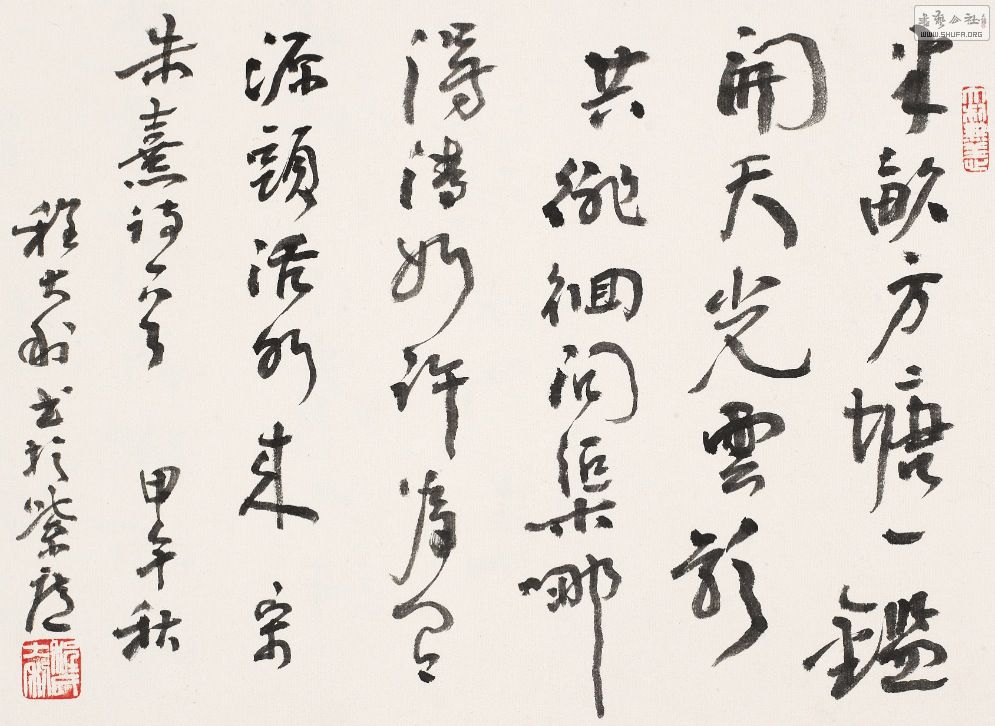 半畝方塘一鑑
開天光雲影
共徘徊問渠哪
得清如許為有
源頭活水來 宋
朱熹詩一首 甲午秋
程大利書於紫廬
書藝公社
WWW.SHUFA.ORG